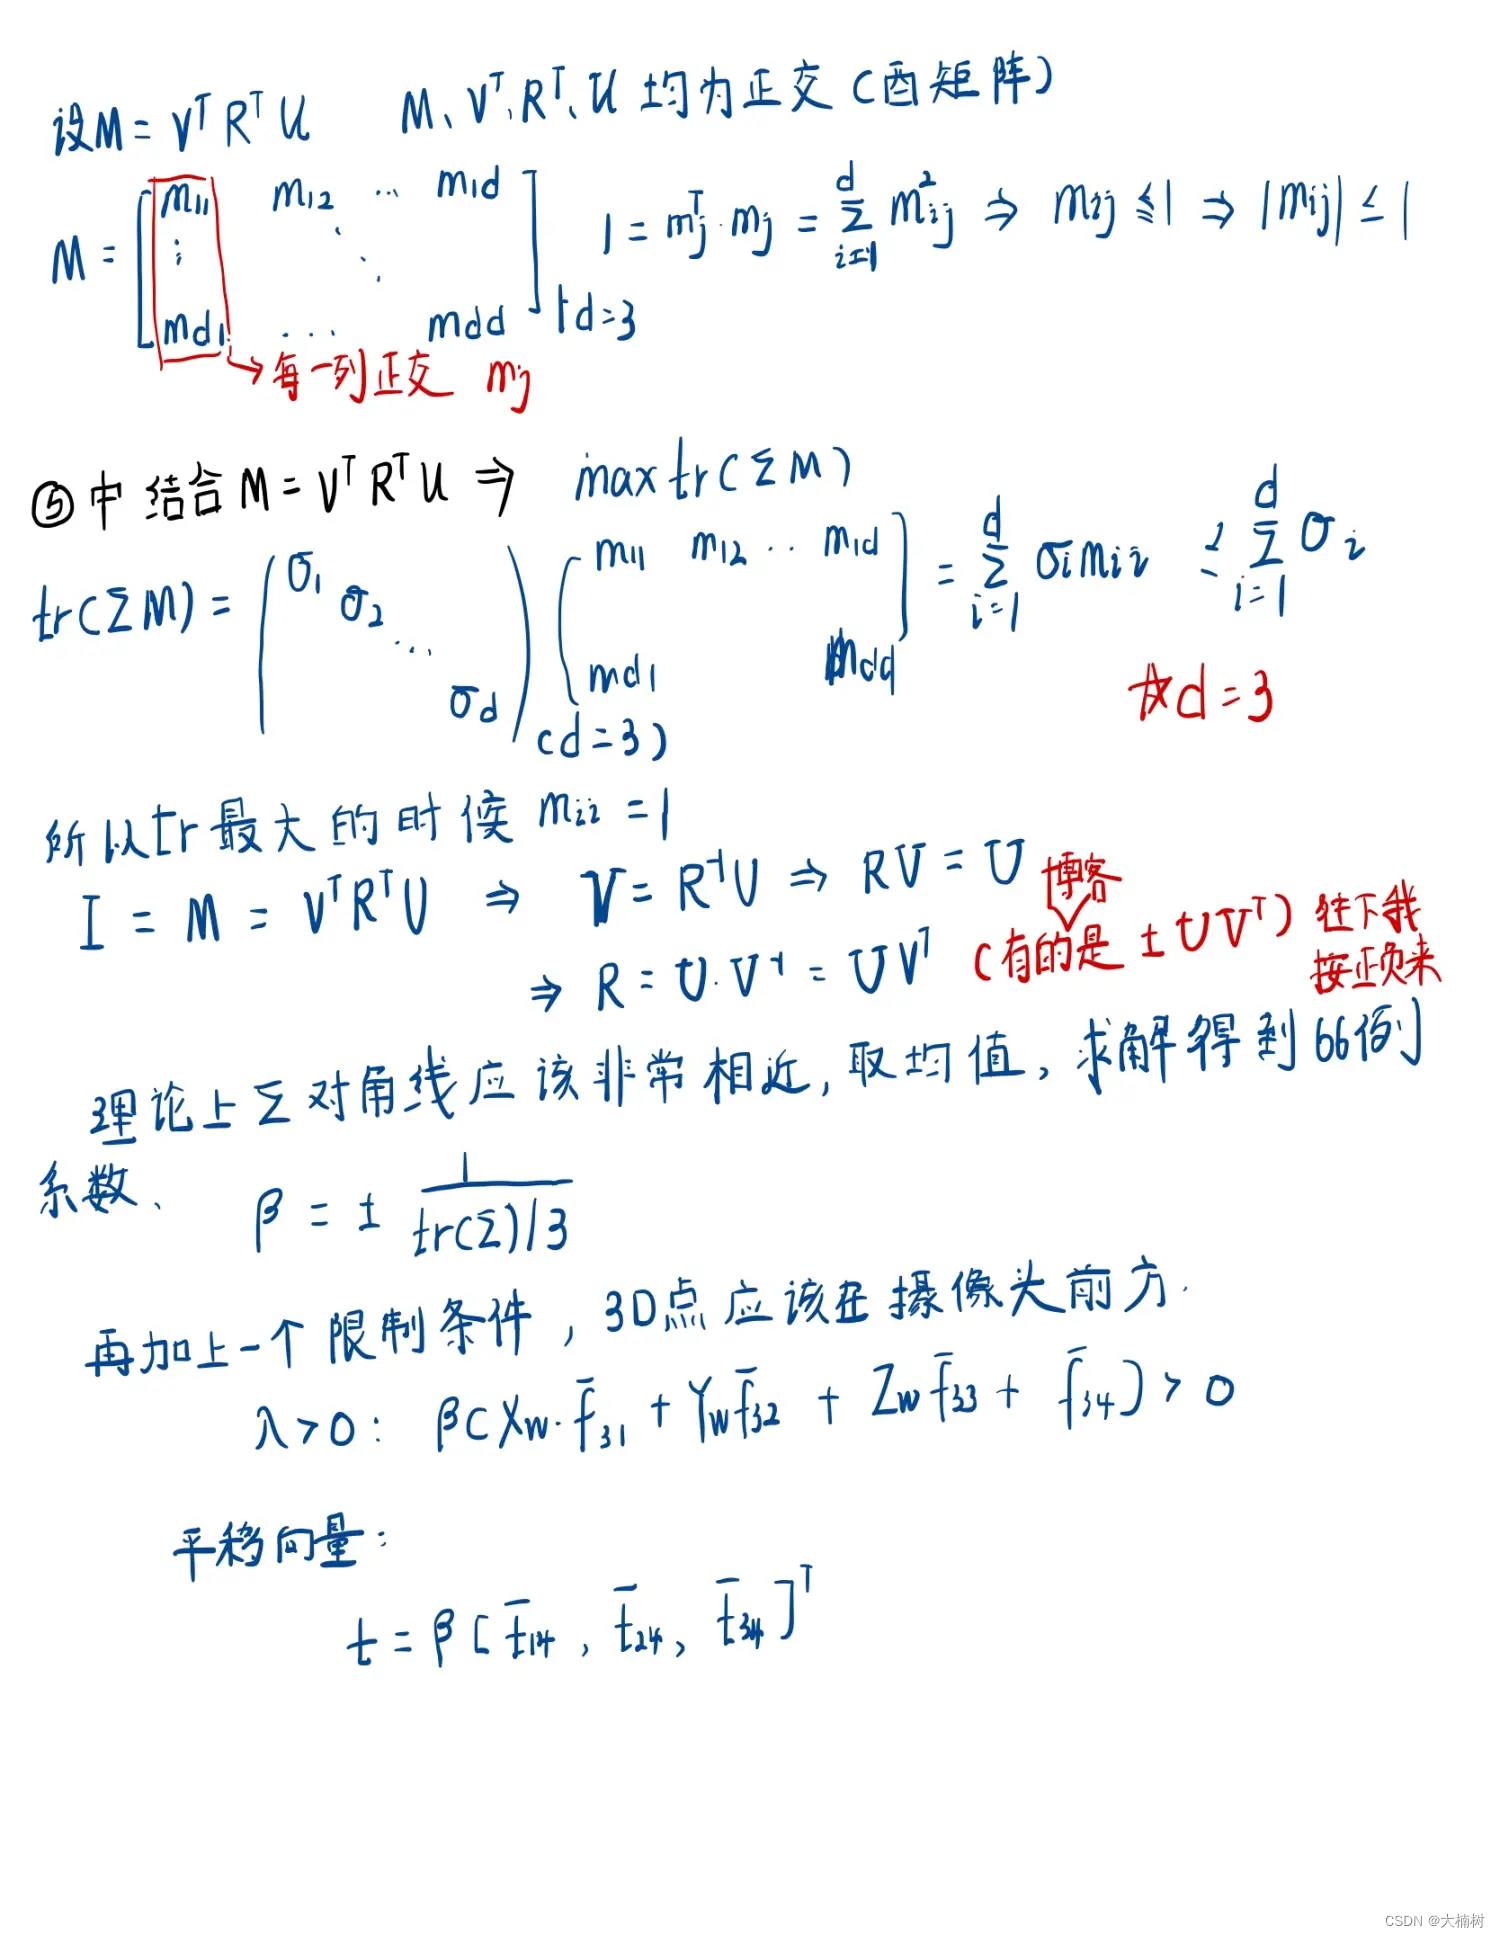 设M = VᵀRᵀU M、Vᵀ、Rᵀ、U 均为正交(酉矩阵)
M = [ m11 m12 … m1d
⋮ ⋱
md1 … mdd ] d=3
1 = mjᵀ·mj = Σ(i=1→d) mij² ⇒ mij ≤ 1 ⇒ |mij| ≤ 1
→每一列正交 mj
⑤中结合M = VᵀRᵀU ⇒ max tr(ΣM)
tr(ΣM) = ( σ1 σ2 … σd ) [ m11 m12 … m1d
md1 mdd ] = Σ(i=1→d) σi mii ≤ Σ(i=1→d) σi
(d=3)
☆d=3
所以tr最大的时候 mii = 1
I = M = VᵀRᵀU ⇒ V = R⁻¹U ⇒ RV = U
⇒ R = U·V⁻¹ = UVᵀ
博客
(有的是 ± UVᵀ) 往下我
按正负来
理论上Σ对角线应该非常相近,取均值,求解得到66例
系数、 β = ± 1/(tr(Σ)/3)
再加上一个限制条件,3D点应该在摄像头前方.
λ>0: β(Xw·f̄31 + Ywf̄32 + Zwf̄33 + f̄34) > 0
平移向量:
t = β[t̄14, t̄24, t̄34]ᵀ
CSDN @大楠树